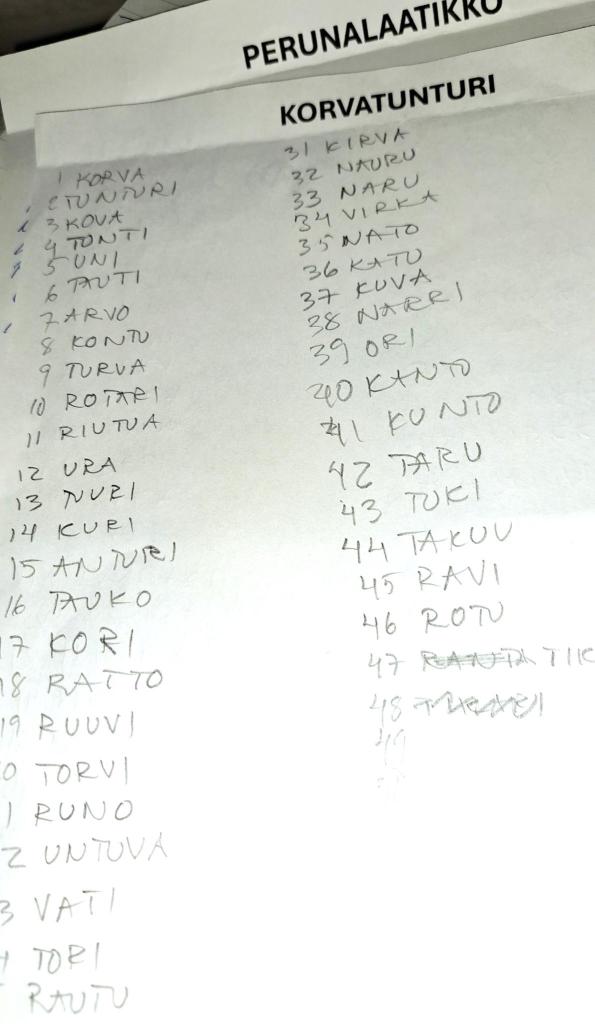 PERUNALAATIKKO
KORVATUNTURI
1 KORVA
2 TUNTURI
3 KOVA
4 TONTI
5 UNI
6 TAUTI
7 ARVO
8 KONTU
9 TURVA
10 ROTARI
11 RIUTUA
12 URA
13 NURI
14 KURI
15 ANTURI
16 TAUKO
17 KORI
18 RATTO
19 RUUVI
0 TORVI
1 RUNO
2 UNTUVA
3 VATI
4 TORI
RAUTU
31 KIRVA
32 NAURU
33 NARU
34 VIRKA
35 NATO
36 KATU
37 KUVA
38 NARRI
39 ORI
40 KANTO
41 KUNTO
42 TARU
43 TUKI
44 TAKUU
45 RAVI
46 ROTU
47 RANTA TIK
48
49